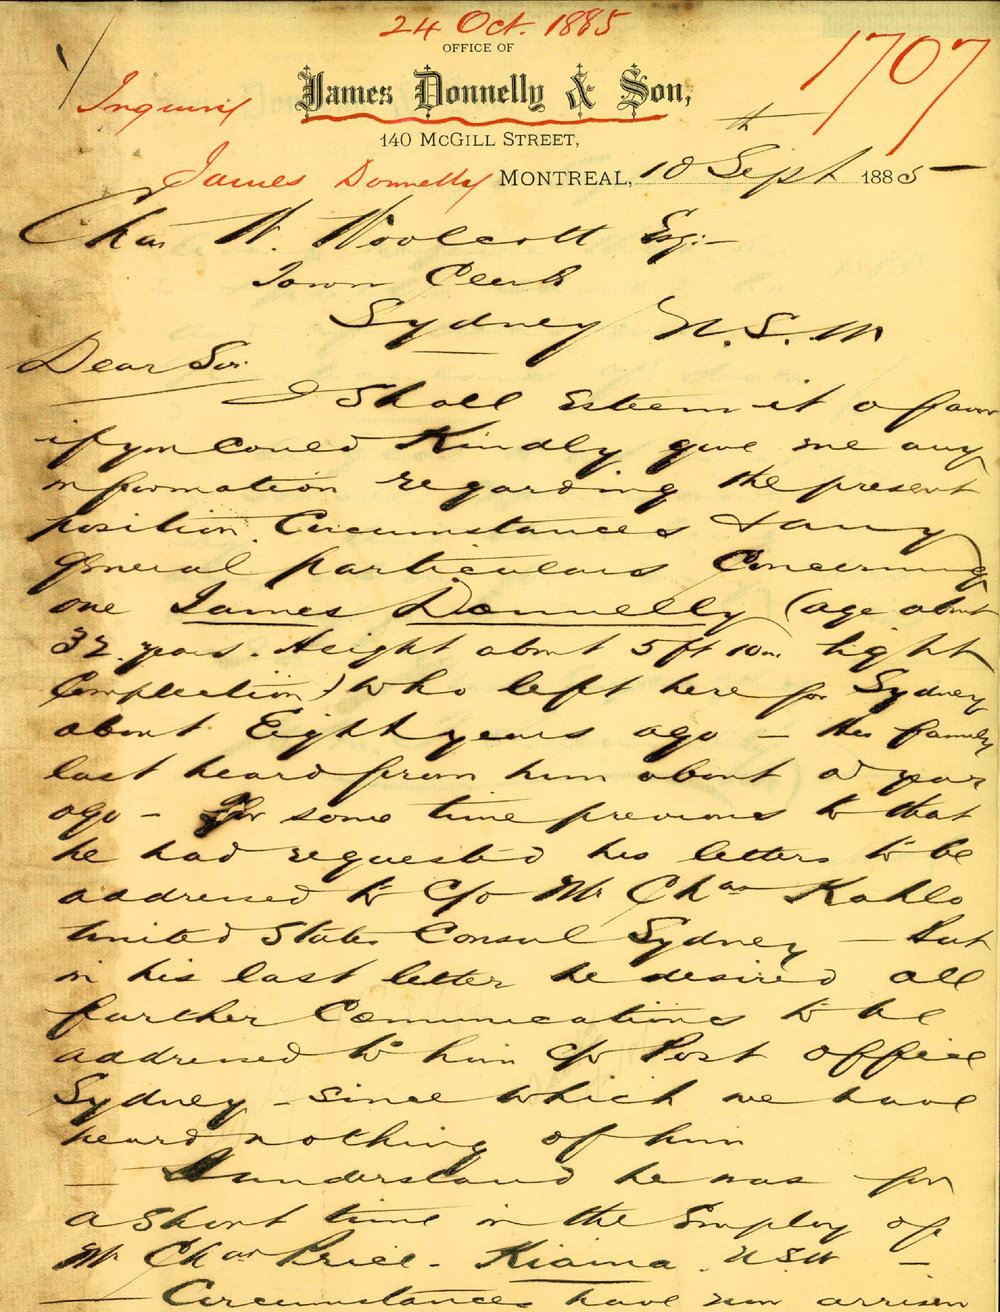 24 Oct. 1885
OFFICE OF
James Donnelly & Son,
1707
Inquiring
140 McGILL STREET,
James Donnelly
MONTREAL, 10th Sept 1885
Chas H. Woolcott Esq:-
Town Clerk
Sydney N.S.W
Dear Sir
I Shall Esteem it a favor
if you could Kindly give me any
information regarding the present
position Circumstances & any
general particulars Concerning
one James Donnelly (age about
32 years. Height about 5 ft 10 in light
Complection) who left here for Sydney
about Eight years ago - His family
last heard from him about a year
ago - For some time previous to that
he had requested his letters to be
addressed to C/o Mr Chas Kahlo
United States Consul Sydney - But
in his last letter he desired all
further Communications to be
addressed to him C/o Post office
Sydney - Since which we have
heard nothing of him
- I understand he was for
a Short time in the Employ of
Mr Chas Price - Kiama. N.S.W -
- Circumstances have now arisen